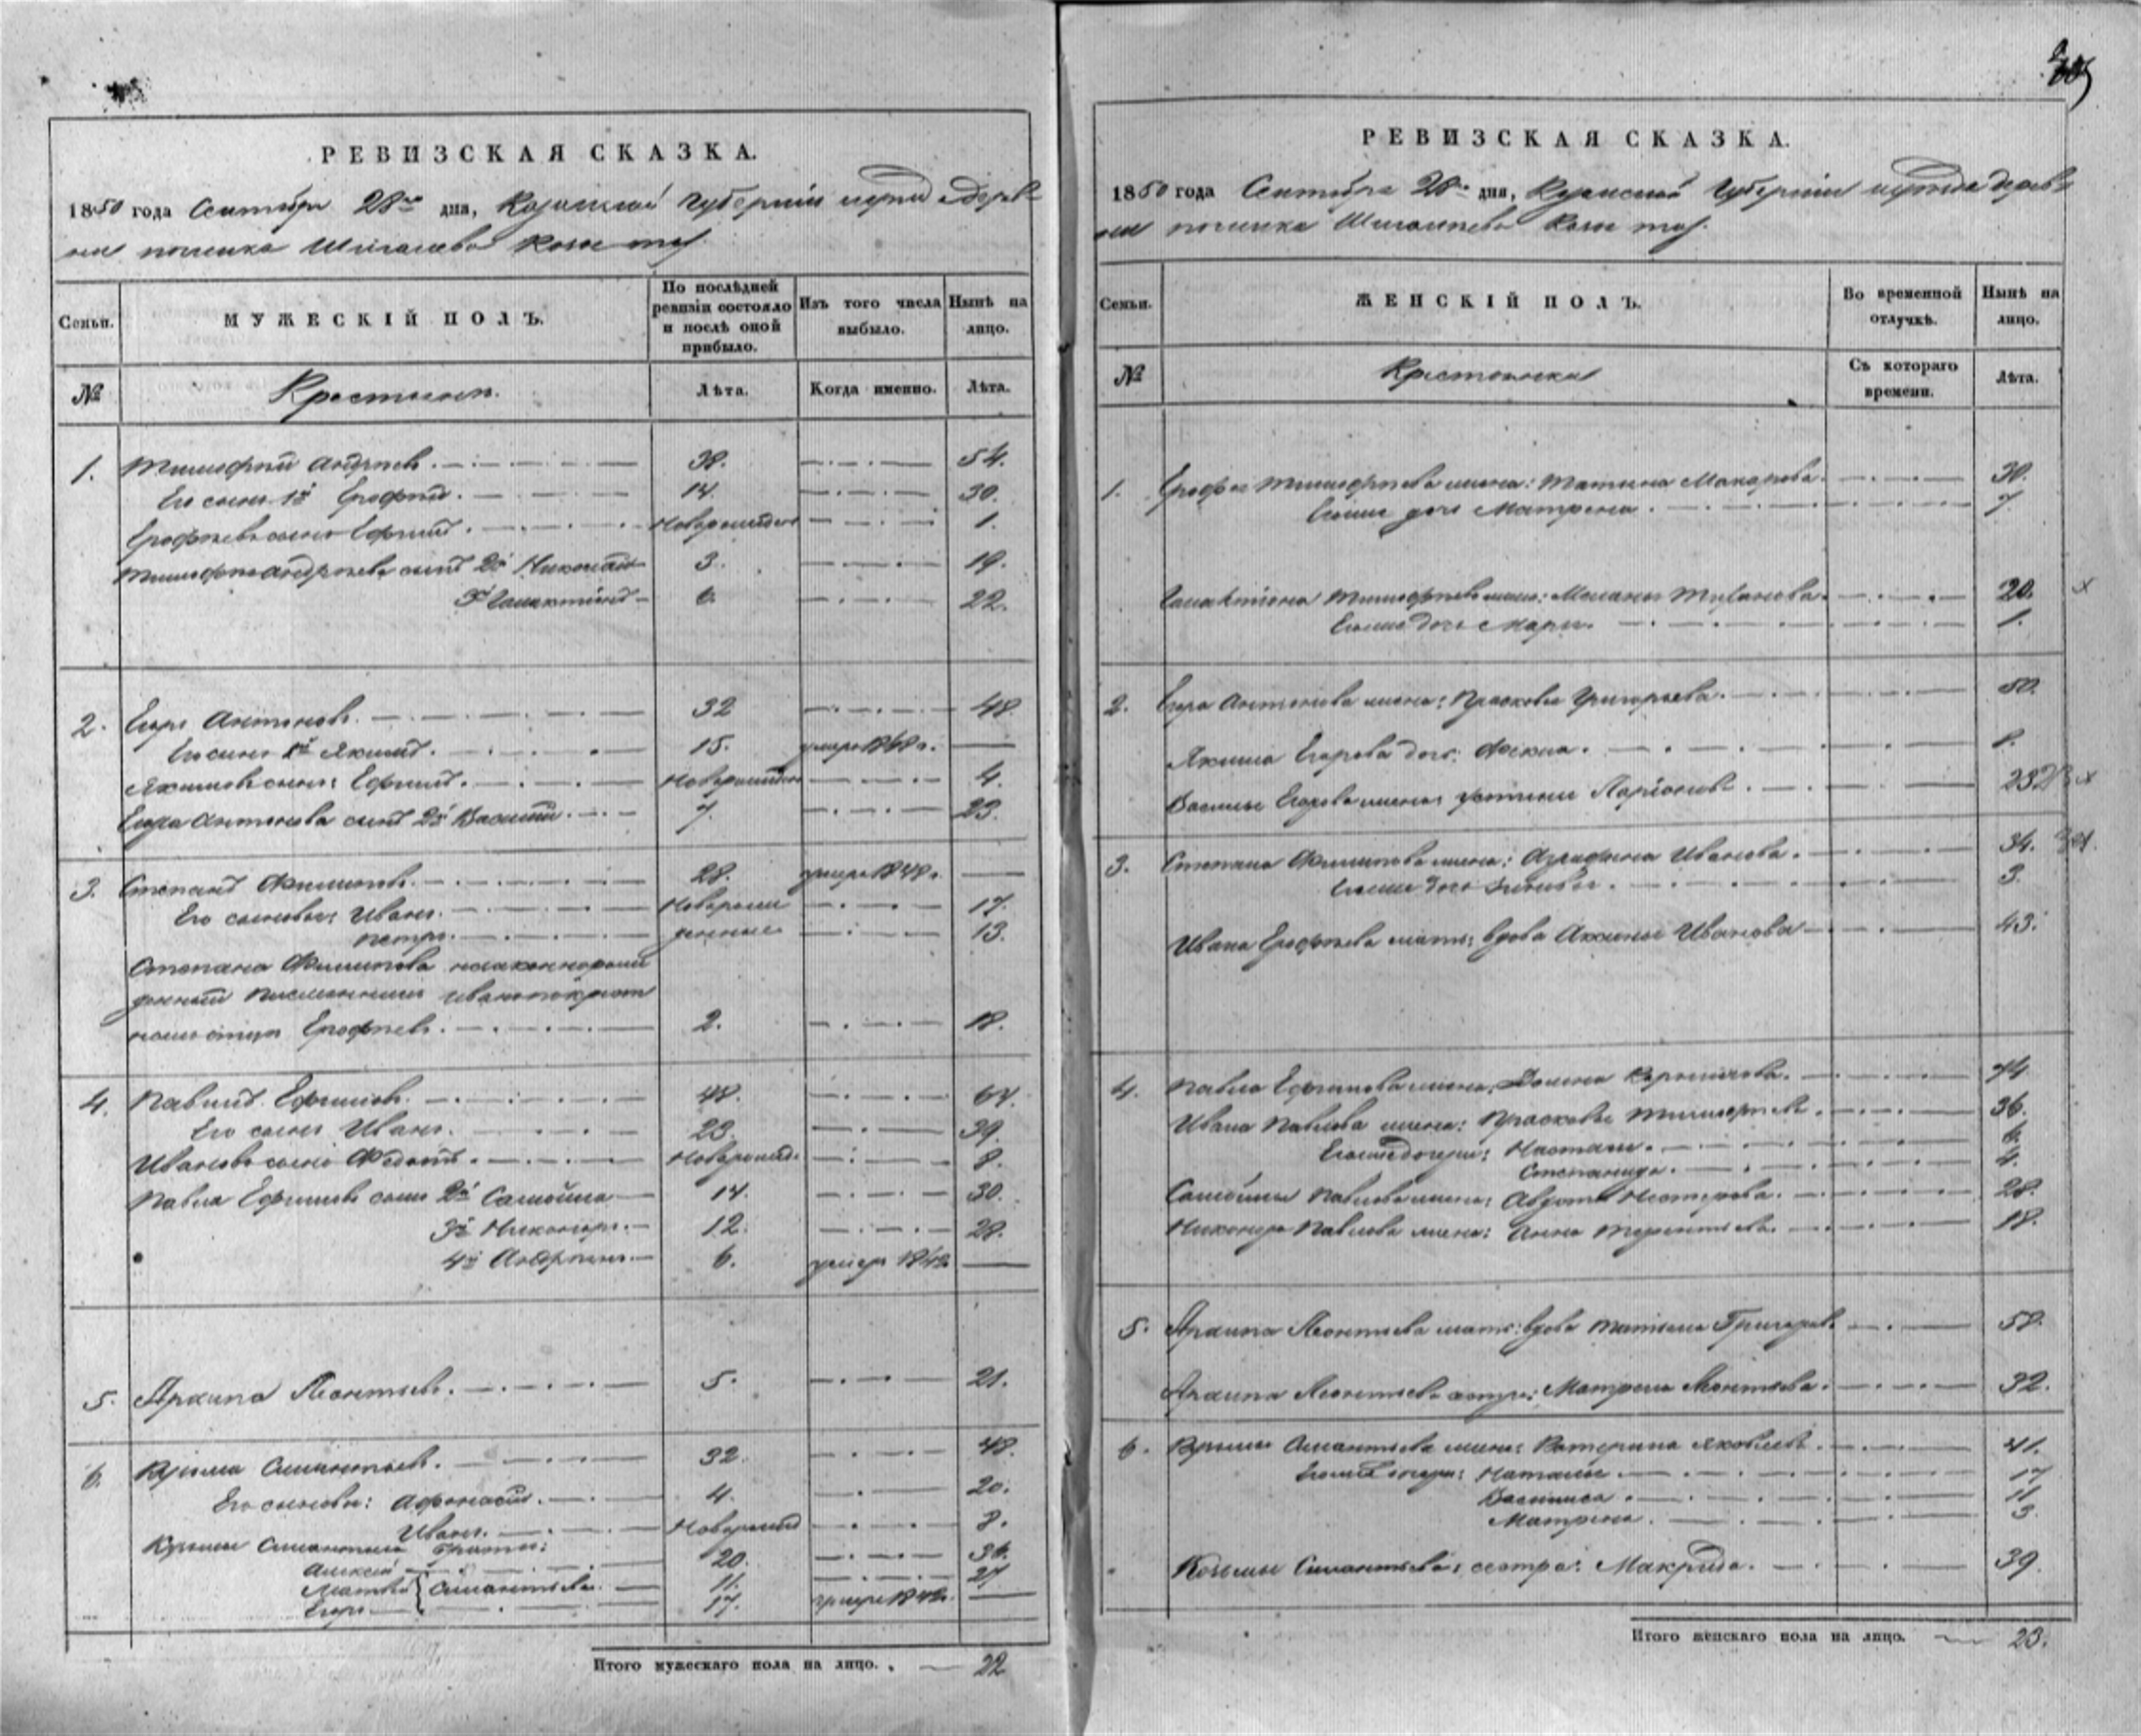 РЕВИЗСКАЯ СКАЗКА.
1850 года Сентября 28го дня, Казанской Губернии
починка
МУЖЕСКІЙ ПОЛЪ.
Семьи.
По послѣдней ревизіи состояло и послѣ оной прибыло.
Изъ того числа выбыло.
Нынѣ на лицо.
№
Крестьяне.
Лѣта.
Когда именно.
Лѣта.
1. Тимофей Андреевъ. 38. 54.
Его сынъ 1й Ерофей. 14. 30.
Ерофеевъ сынъ Ефимъ. Новорожден 1.
Тимофея Андреева сынъ 2й Николай 3. 19.
3й Галактионъ 6. 22.
2. Егоръ Антоновъ. 32 48.
Его сынъ 1й Якимъ. 15. умеръ
Якимовъ сынъ: Ефимъ. Новорожден 4.
Егора Антонова сынъ 2й Василий. 7. 23.
3. Степанъ Филиповъ. 28. умеръ 1848
Его сыновья: Иванъ. Новорож 17.
Петръ. денные 13.
Степана Филипова незаконнорож
денный племянникъ Иванъ по крест
ному отцу Ерофеевъ. 2. 18.
4. Павелъ Ефимовъ. 48. 64.
Его сынъ Иванъ. 23. 39.
Ивановъ сынъ Федотъ. Новорожд 8.
Павла Ефимова сынъ 2й Самойла 14. 30.
3й Никоноръ. 12. 28.
4й Андреянъ. 6. умеръ
5. Архипъ Леонтьевъ. 5. 21.
6. Кузьма Силантьевъ. 32. 48.
Его сыновья: Афонасий. 4. 20.
Иванъ. Новорожд 8.
Кузьмы Силантьева братья:
Алексей 20. 36.
Матвей Силантьевы. 11. 27
Егоръ 17. умеръ
Итого мужескаго пола на лицо. 22
РЕВИЗСКАЯ СКАЗКА.
1850 года Сентября 28го дня, Казанской Губернии
починка
Семьи.
ЖЕНСКІЙ ПОЛЪ.
Во временной отлучкѣ.
Нынѣ на лицо.
№
Крестьянки
Съ котораго времени.
Лѣта.
1. Ерофея Тимофеева жена: Татьяна Макарова. 30.
Ево же дочь Матрена. 7
Галактиона Тимофеева жена: Меланья 20. х
Ево же дочь Марья. 1.
2. Егора Антонова жена: Прасковья Григорьева. 50.
Якима Егорова дочь: Фекла. 8.
Василья Егорова жена: Устинья Ларионова. 23
3. Степана Филипова жена: Аграфена Иванова. 34.
Ево же дочь Зиновья. 3.
Ивана Ерофеева мать: вдова Аксинья Иванова 43.
4. Павла Ефимова жена:
Ивана Павлова жена: Прасковья 36.
Ево же дочери: Настасья. 6.
Степанида. 4.
Самойлы Павлова жена: Авдотья Нестерова. 28.
Никонора Павлова жена: Анна Терентьева. 18.
5. Архипа Леонтьева мать: вдова Татьяна Григорьева 58.
Архипа Леонтьева сестра: Матрена Леонтьева. 32.
6. Кузьмы Силантьева жена: Катерина Яковлева. 41.
Ево же дочери: Наталья. 17
Василиса. 11
Матрена. 3.
Козьмы Силантьева: сестра: Макрида. 39.
Итого женскаго пола на лицо. 23.